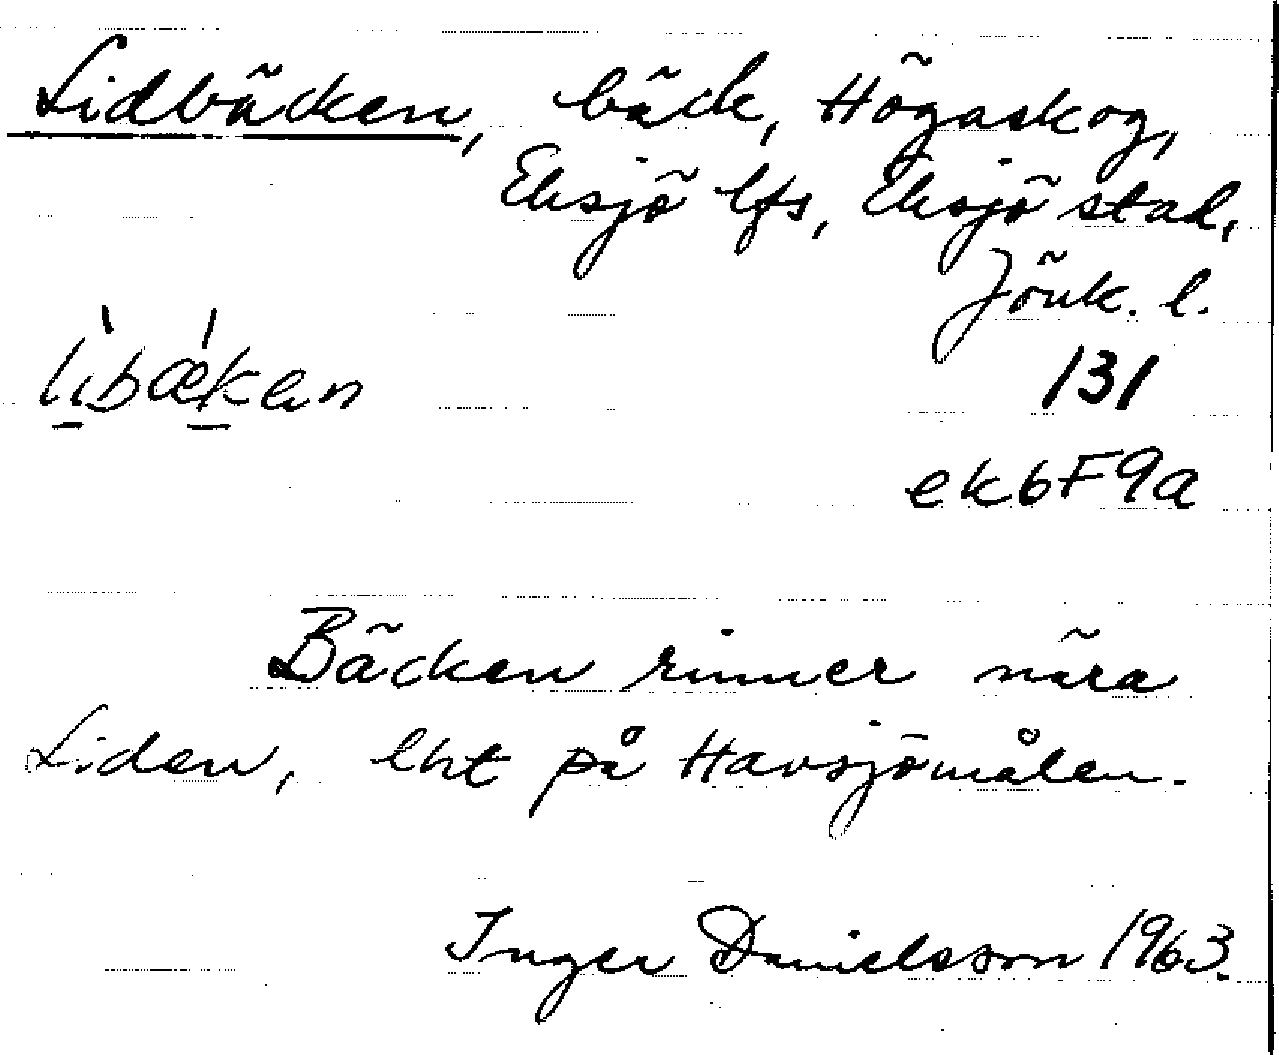 Lidbäcken, bäck, Högaskog,
Eksjö lfs, Eksjö stad,
Jönk. l.
lìbǽken
131
ek6F9a
Bäcken rinner nära
Liden, lht på Havsjömålen.
Inger Danielsson 1963.